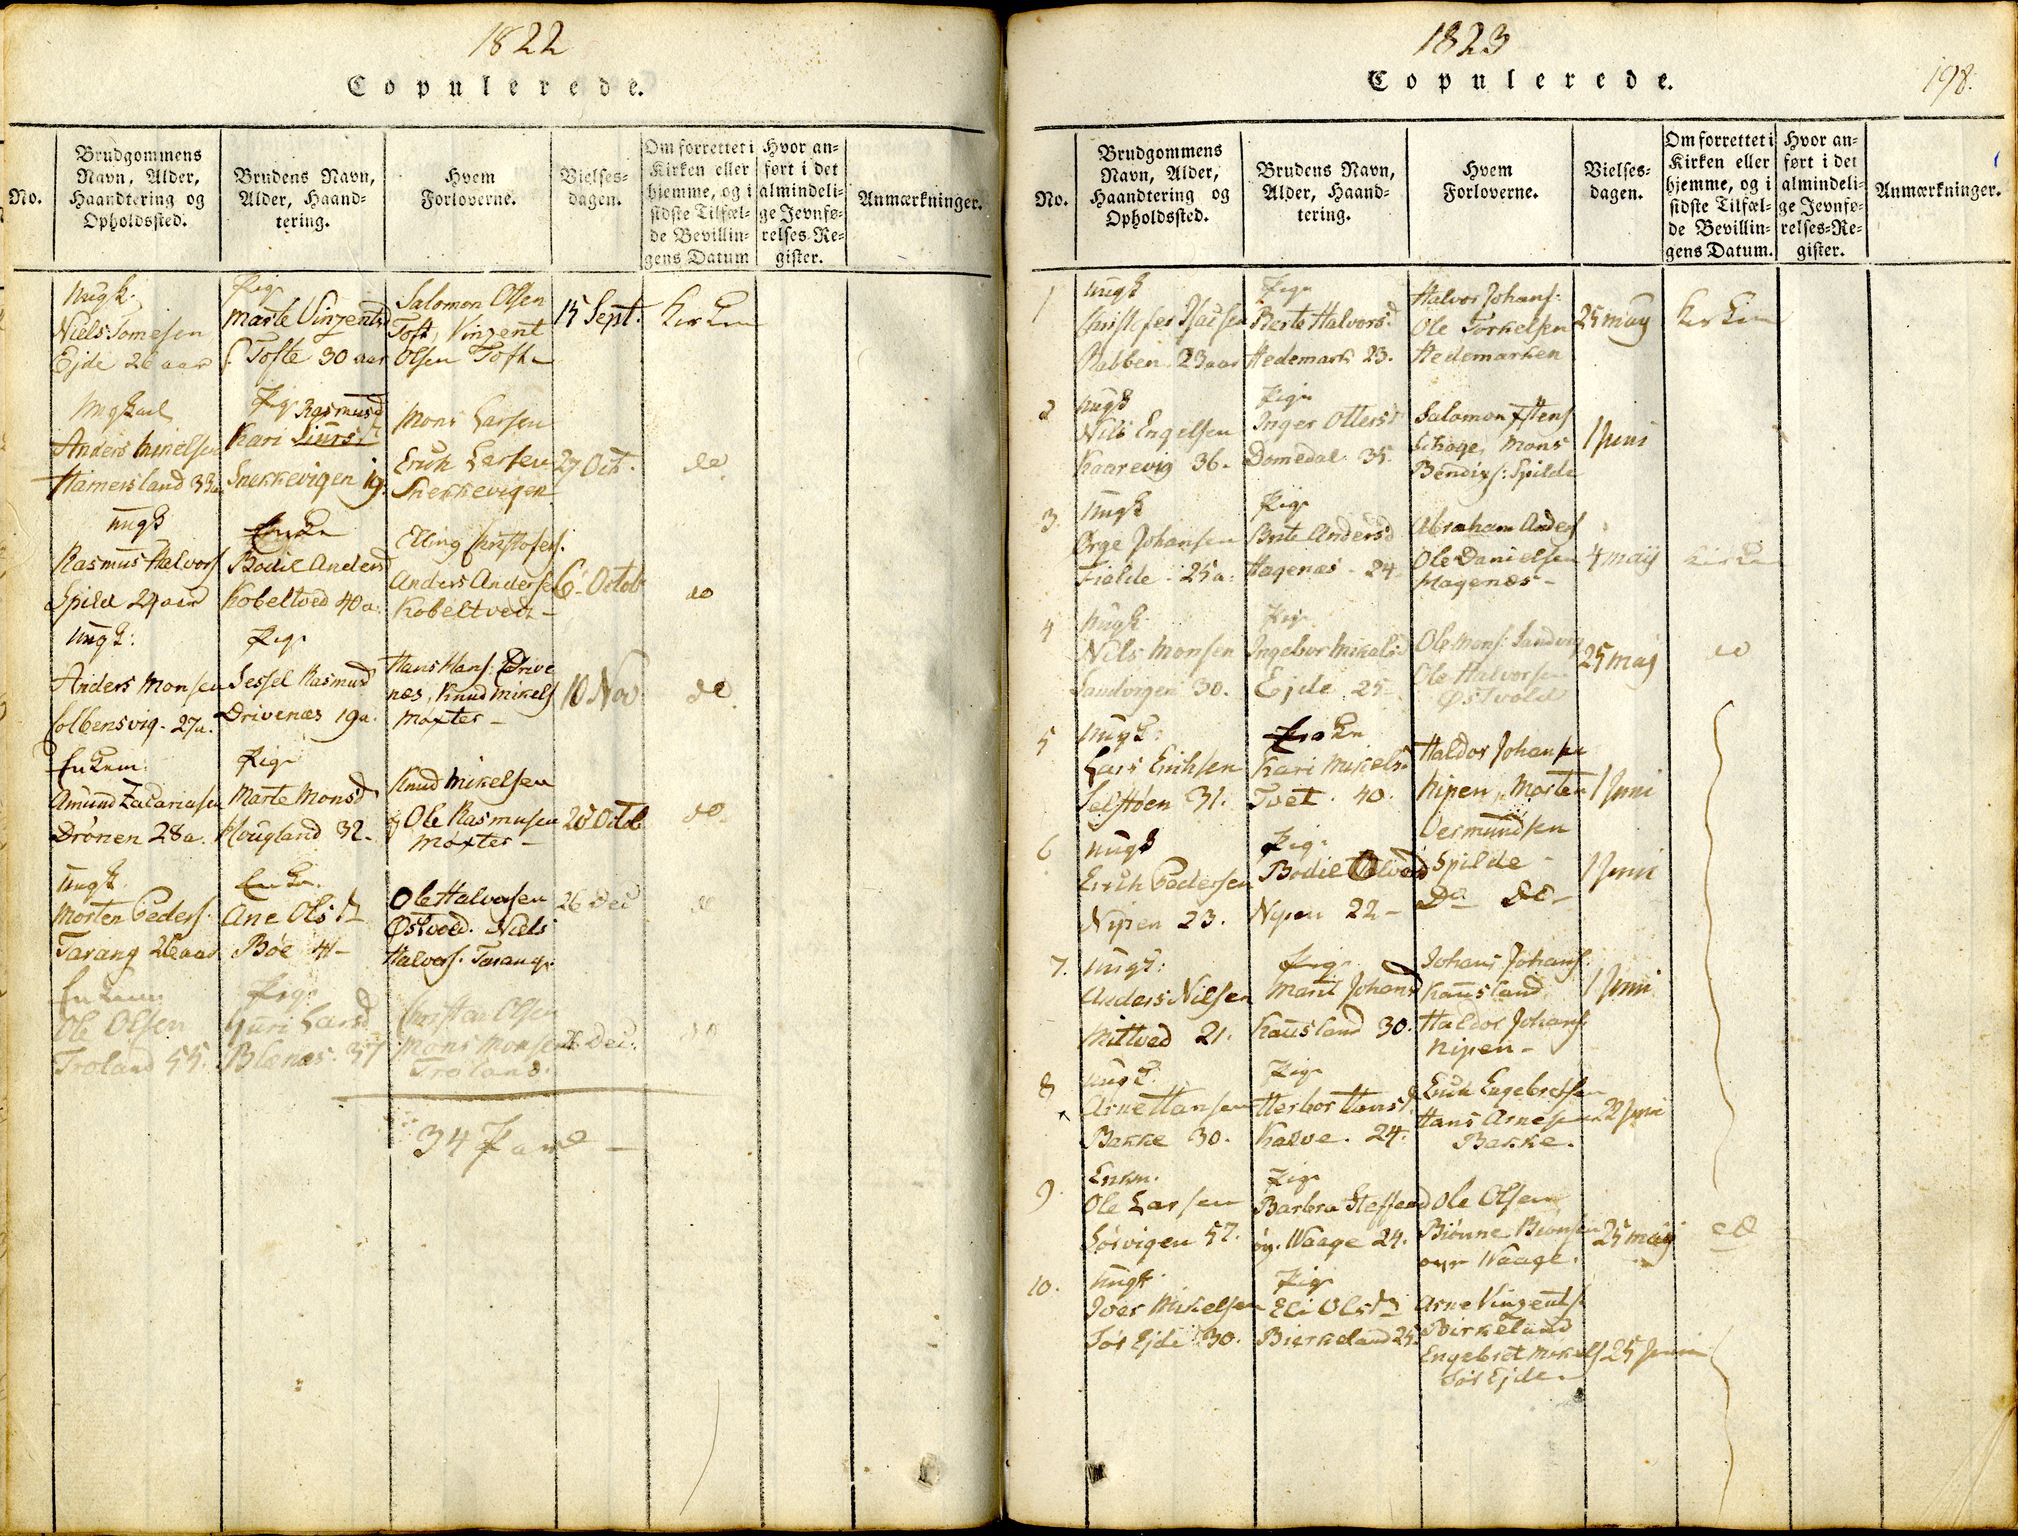 1822
Copulerede.
No.
Brudgommens
Navn, Alder,
Haandtering og
Opholdssted.
Brudens Navn,
Alder, Haand-
tering.
Hvem
Forloverne.
Vielses-
dagen.
Om forrettet i
Kirken eller
hjemme, og i
sidste Tilfæl-
de Bevillin-
gens Datum
Hvor an-
ført i det
almindeli-
ge Jevnfø-
relses-Re-
gister.
Anmærkninger.
ungk.
Niels Tomesen
Ejde 26 aar
Pige
Marte Vinzentsd
Tofte 30 aar
Salomon Olsen
Toft, Vinzent
Olsen Tofte
15 Sept.
Kirken
ungkarl
Anders Mikelsen
Hamersland 33a
Pige Rasmusd
Kari Siursd
Snekkevigen 19.
Mons Larsen
Erich Larsen
Snekkevigen
27 Oct.
do
ungk
Rasmus Halvors
Spild 24 aar
Enke
Bodil Andersd
Kobeltved 40a.
Elling Christofers.
Anders Andersen
Kobeltvedt
6 Octob
do
ungk:
Anders Monsen
Colbensvig 27a.
Pige
Sessel Rasmusd
Drivenæs 19a.
Hans Hans. Drive
næs, Knud Mikels
Møxter
10 Nov.
do
Enkem.
Amund Zacariasen
Drönen 28a.
Pige
Marte Monsd
Hougland 32
Knud Mikelsen
Ole Rasmusen
Møxter
20 Octob
do
ungk.
Morten Peders.
Tarang 26 aar
Enke.
Ane Olsd
Bøe 41
Ole Halvorsen
Østvold. Niels
Halvors. Tarang.
26 Dec
do
Enkem.
Ole Olsen
Troland 55.
Pige
Guri Larsd
Blænes. 37
Christian Olsen
Mons Monsen
Troland.
Dec.
do
34 Par

1823
Copulerede.
198.
No.
Brudgommens
Navn, Alder,
Haandtering og
Opholdssted.
Brudens Navn,
Alder, Haand-
tering.
Hvem
Forloverne.
Vielses-
dagen.
Om forrettet i
Kirken eller
hjemme, og i
sidste Tilfæl-
de Bevillin-
gens Datum.
Hvor an-
ført i det
almindeli-
ge Jevnfø-
relses-Re-
gister.
Anmærkninger.
1
ungk
Christofer Isacsen
Rabben 23 aar
Pige
Berte Halvorsd
Hedemark 23.
Halvor Johans:
Ole Torkelsen
Hedemarken
25 May
Kirken
2
ungk
Nils Engelsen
Kaarevig 36.
Pige
Inger Ottersd
Domedal 35.
Salomon Østens
Skoge, Mons
Bendix: Spilde
1 Juni
3.
ungk
Ørge Johansen
Fielde 25a.
Pige
Brite Andersd
Hagenæs 24
Abraham Anders
Ole Danielsen
Hagenæs
4 May
Kirken
4
ungk
Nils Monsen
Sandvigen 30.
Pige
Ingebor Mikelsd
Ejde 25
Ole Mons: Sandvig
Ole Halvorsen
Østvold
25 May
do
5
ungk:
Lars Erichsen
Selstøen 31.
Enke
Kari Mikelsd
Tvet. 40.
Haldor Johansen
Nipen, Morten
Vermundsen
Spilde
1 Juni
6
ungk
Erich Pedersen
Nipen 23.
Pige
Bodil Halvorsd
Nipen 22
Do Do
1 Juni
7.
ungk:
Anders Nilsen
Mitved 21.
Pige
Marit Johansd
Kausland 30.
Johans Johans
Kausland
Haldor Johans
Nipen
1 Juni
8
ungk.
Arne Hansen
Bakke 30.
Pige
Herbor Hansd.
Kalve. 24.
Erich Engebretsen
Hans Arnesen
Bakke.
22 Juni
9
Enkm.
Ole Larsen
Sörvigen 57.
Pige
Barbra Steffensd
Waage 24.
Ole Olsen
Biönne Biönsen
Waage.
25 May
do
10.
ungk.
Iver Mikelsen
Sör Ejde 30.
Pige
Eli Olsd
Birkeland 25.
Arne Vinzents.
Birkeland
Engebret Mikels
Sör Ejde
25 Juni